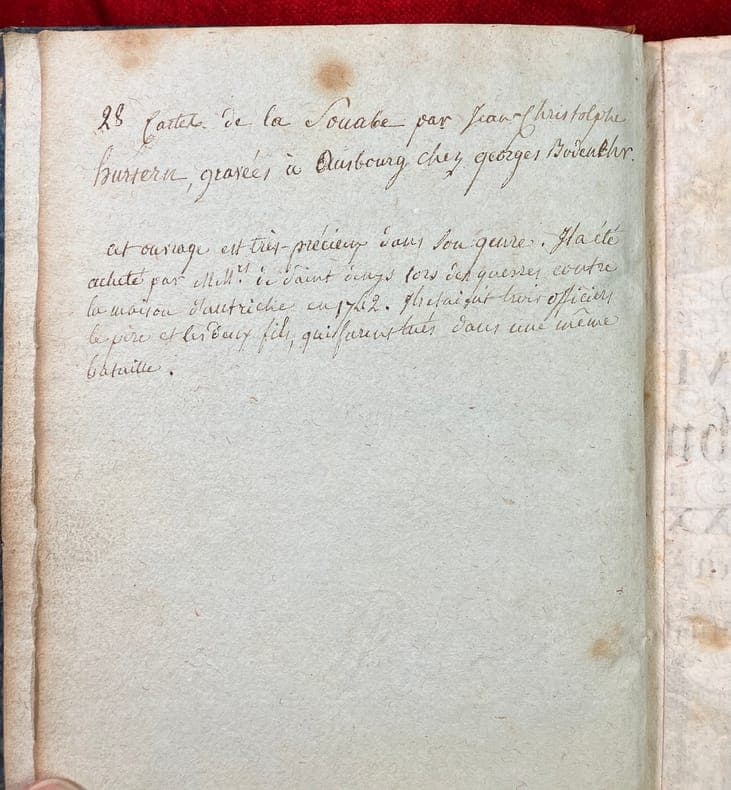 28 Cartes de la Souabe par Jean-Christolphe
hurtern, gravées à Ausbourg chez georges Bodenehr.
cet ouvrage est très-précieux dans son genre. Il a été
acheté par MM.rs de Saint denys lors des guerres contre
la maison d'autriche en 1742. Ils étaient trois officiers
le père et les deux fils, qui furent tués dans une même
bataille.